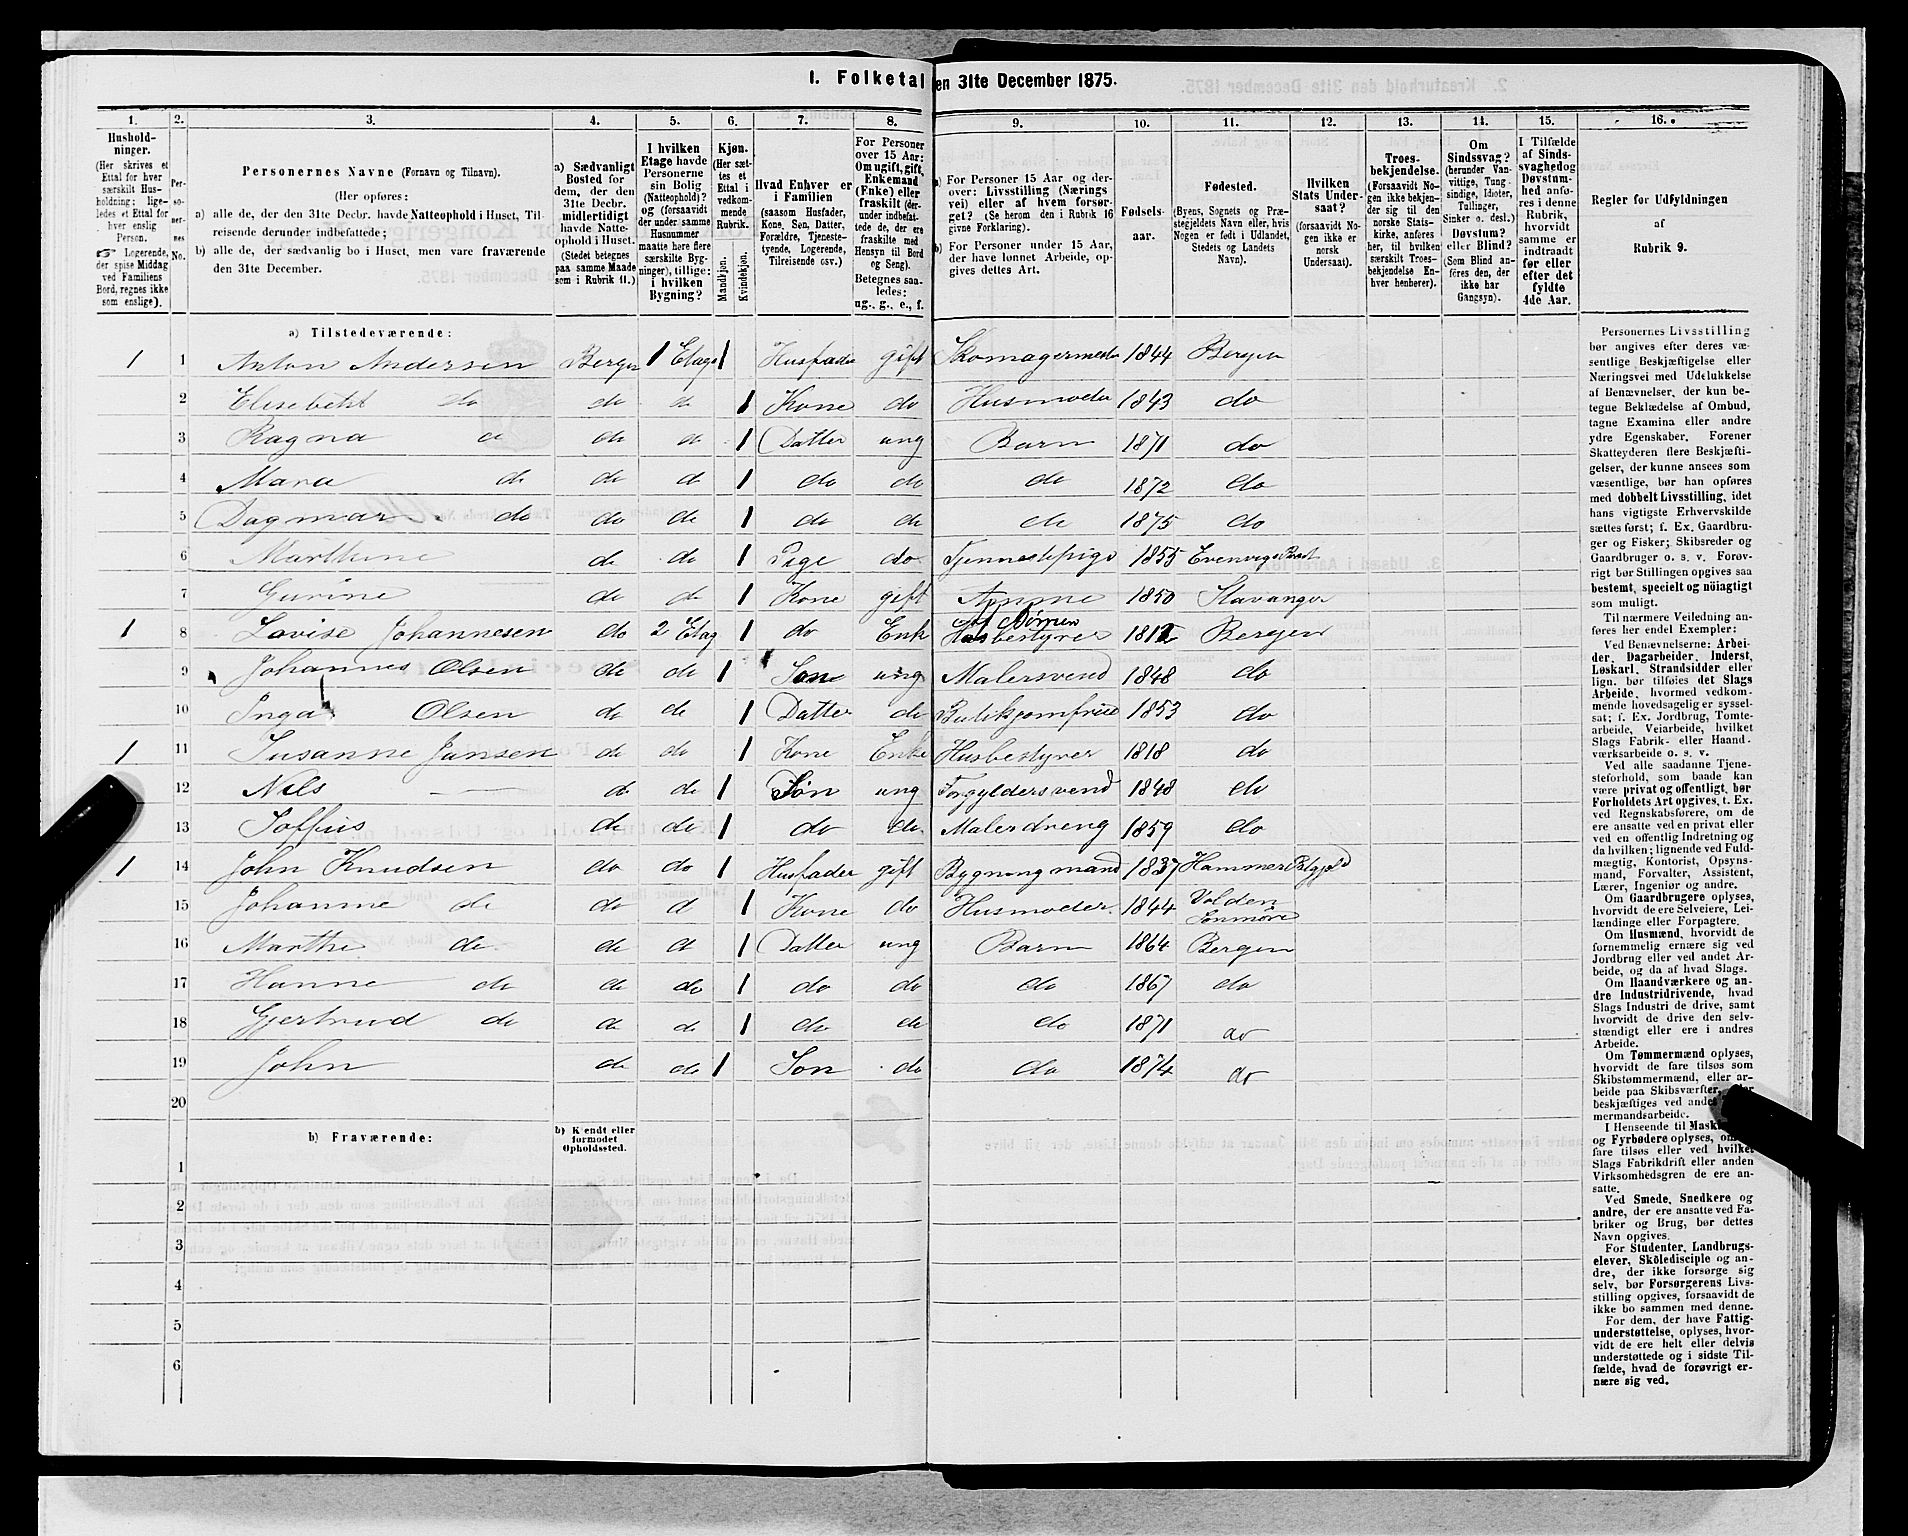 1. Folketal den 31te December 1875.
1. 2. 3. 4. 5. 6. 7. 8. 9. 10. 11. 12. 13. 14. 15. 16.
Husholdninger.
(Her skrives et Ettal for hver særskilt Husholdning: ligeledes et Ettal for hver enslig Person.
Logerende, der spise Middag ved Familiens Bord, regnes ikke som enslige).
Personernes No.
Personernes Navne (Fornavn og Tilnavn).
(Her opføres:
a) alle de, der den 31te Decbr. havde Natteophold i Huset, Tilreisende derunder indbefattede;
b) alle de, der sædvanlig bo i Huset, men vare fraværende den 31te December.
a) Sædvanligt Bosted for dem, der den 31te Decbr. midlertidigt havde Natteophold i Huset.
(Stedet betegnes paa samme Maade som i Rubrik 11.)
I hvilken Etage havde Personerne sin Bolig (Natteophold)? og (forsaavidt der under samme Husnummer maatte høre flere særskilte Bygninger), tillige: i hvilken Bygning?
Kjøn.
(Her sættes et Ettal i vedkommende Rubrik.
Mandkjøn. Kvindekjøn.
Hvad Enhver er i Familien
(saasom Husfader, Kone, Søn, Datter, Forældre, Tjenestetyende, Logerende, Tilreisende osv.)
For Personer over 15 Aar: Om ugift, gift, Enkemand (Enke) eller fraskilt (derunder indbefattede de, der ere fraskilte med Hensyn til Bord og Seng).
Betegnes saaledes: ug., g., e., f.
a) For Personer 15 Aar og derover: Livsstilling (Næringsvei) eller af hvem forsørget? (Se herom den i Rubrik 16 givne Forklaring).
b) For Personer under 15 Aar, der have lønnet Arbeide, opgives dettes Art.
Fødselsaar.
Fødested.
(Byens, Sognets og Præstegjeldets Navn eller, hvis Nogen er født i Udlandet, Stedets og Landets Navn).
Hvilken Stats Undersaat?
(forsaavidt Nogen ikke er norsk Undersaat).
Troesbekjendelse.
(Forsaavidt Nogen ikke bekjender sig til den norske Statskirke, anføres her, til hvilken særskilt Troesbekjendelse Enhver henhører).
Om Sindssvag? (herunder Vanvittige, Tungsindige, Idioter, Tullinger, Sinker o. desl.) Døvstum? eller Blind?
(Som Blind anføres den, der ikke har Gangsyn).
I Tilfælde af Sindssvaghed og Døvstumhed anføres i denne Rubrik, hvorvidt samme er indtraadt før eller efter det fyldte 4de Aar.
Regler for Udfyldningen af Rubrik 9.
a) Tilstedeværende:
1 1 Anton Andersen Bergen 1 Etage 1 Husfader gift Skomagermester 1844 Bergen
2 Elisebeht do do do 1 Kone do Husmoder 1843 do
3 Ragna do do do 1 Datter ung Barn 1871 do
4 do do do 1 do do do 1872 do
5 Dagmar do do do 1 do do do 1875 do
6 Marthine do do 1 Pige do Tjennestepige 1855
7 Gurine do do 1 Kone gift Amme 1850 Stavanger
1 8 Lovise Johannesen do 2 Etag 1 do Enk Husbestyrer Bergen
9 Johannes Olsen do do 1 Søn ung Malersvend 1848 do
10 Inga Olsen do do 1 Datter do Butiksjomfrue 1853 do
1 11 Susanne Jansen do do 1 Kone Enke Husbestyrer 1818 do
12 Nils — do do 1 Søn ung Forgyldersvend 1848 do
13 Soffus do do 1 do do Malerdreng 1859 do
1 14 John Knudsen do do 1 Husfader gift Bygningmand 1837 Hammer
15 Johanne do do d 1 Kone do Husmoder 1844 Volden Sønmøre
16 Marthe do do d 1 Datter ung Barn 1864 Bergen
17 Hanne do do do 1 do do do 1867 do
18 Gjertrud do do do 1 do do do 1871 do
19 John do do 1 Søn do do 1874 do
20
b) Fraværende:
b) Kjendt eller formodet Opholdssted.
1
2
3
4
5
6
Personernes Livsstilling bør angives efter deres væsentlige Beskjæftigelse eller Næringsvei med Udelukkelse af Benævnelser, der kun betegne Beklædelse af Ombud, tagne Examina eller andre ydre Egenskaber. Forener Skatteyderen flere Beskjæftigelser, der kunne ansees som væsentlige, bør han opføres med dobbelt Livsstilling, idet hans vigtigste Erhvervskilde sættes først; f. Ex. Gaardbruger og Fisker; Skibsreder og Gaardbruger o. s. v. Forøvrigt bør Stillingen opgives saa bestemt, specielt og nøiagtigt som muligt.
Til nærmere Veiledning anføres her endel Exempler:
Ved Benævnelserne: Arbeider, Dagarbeider, Inderst, Løskarl, Strandsidder eller lign. bør tilføies det Slags Arbeide, hvormed vedkommende hovedsagelig er sysselsat; f. Ex. Jordbrug, Tomtearbeide, Veiarbeide, hvilket Slags Fabrik- eller Haandværksarbeide o. s. v.
Ved alle saadanne Tjenesteforhold, som baade kan være privat og offentligt, bør Forholdets Art opgives, t. Ex. ved Regnskabsførere, om de ere ansatte ved en privat eller ved en offentlig Indretning og da hvilken; lignende ved Fuldmægtig, Kontorist, Opsynsmand, Forvalter, Assistent, Lærer, Ingeniør og andre.
Om Gaardbrugere oplyses, hvorvidt de ere Selveiere, Leilændinge eller Forpagtere.
Om Husmænd, hvorvidt de fornemmelig ernære sig ved Jordbrug eller ved andet Arbeide, og da af hvad Slags.
Om Haandværkere og andre Industridrivende, hvad Slags Industri de drive, samt hvorvidt de drive den selvstændigt eller ere i andres Arbeide.
Om Tømmermænd oplyses, hvorvidt de fare tilsøs som Skibstømmermænd, eller arbeide paa Skibsværfter, eller beskjæftiges ved andet mermandsarbeide.
I Henseende til og Fyrbødere oplyses, om fare tilsøs eller ved hvilket Slags Fabrikdrift eller anden Virksomhedsgren de ere ansatte.
Ved Smede, Snedkere og andre, der ere ansatte ved Fabriker og Brug, bør dettes Navn opgives.
For Studenter, Landbrugselever, Skoledisciple og andre, der ikke forsørge sig selv, bør Forsørgerens Livsstilling opgives, forsaavidt de ikke bo sammen med denne.
For dem, der have Fattigunderstøttelse, oplyses, hvorvidt de ere helt eller delvis understøttede og i sidste Tilfælde, hvad de forøvrigt ernære sig ved.